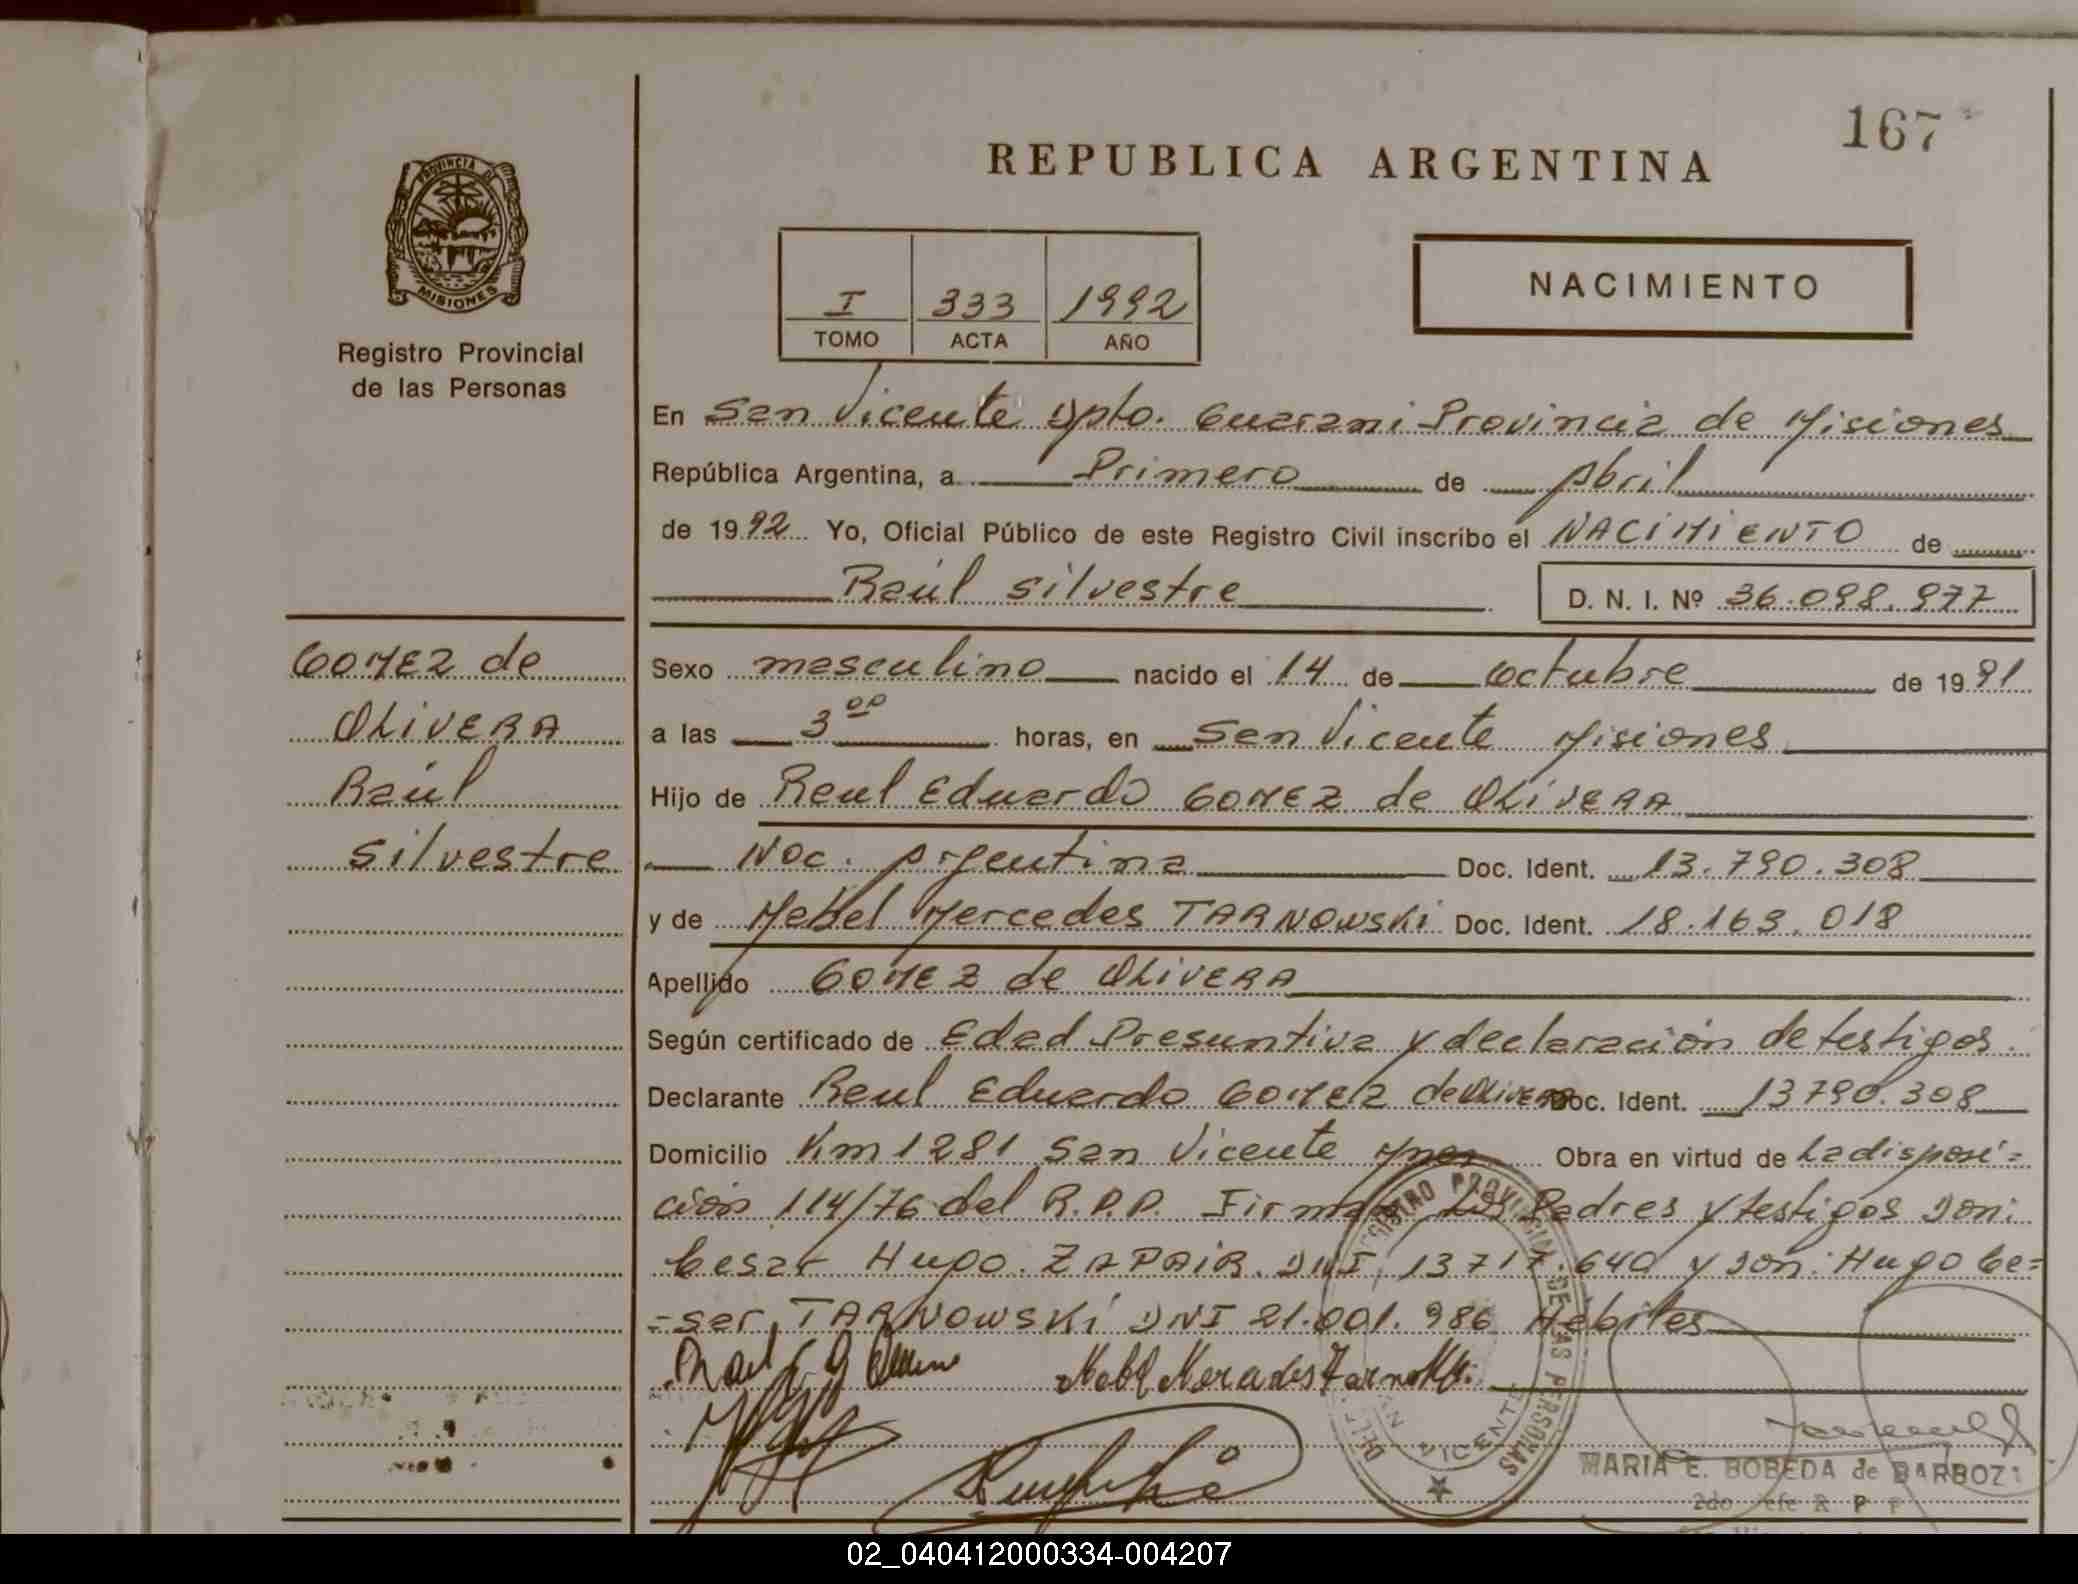 167
REPUBLICA ARGENTINA
PROVINCIA DE
MISIONES
Registro Provincial
de las Personas
NACIMIENTO
I 333 1992
TOMO ACTA AÑO
En San Vicente Dpto. Guarani Provincia de Misiones
República Argentina, a Primero de Abril
de 1992 Yo, Oficial Público de este Registro Civil inscribo el NACIMIENTO de
Raúl Silvestre D. N. I. Nº 36.098.977
GOMEZ de
OLIVERA
Raúl
Silvestre
Sexo masculino nacido el 14 de octubre de 1991
a las 3 00 horas, en San Vicente Misiones
Hijo de Raul Eduardo GOMEZ de OLIVERA
Nac. Argentina Doc. Ident. 13.790.308
y de Mabel Mercedes TARNOWSKI Doc. Ident. 18.163.018
Apellido GOMEZ de OLIVERA
Según certificado de Edad Presuntiva y declaración de testigos.
Declarante Raul Eduardo GOMEZ de OLIVERA Doc. Ident. 13790.308
Domicilio Km 1281 San Vicente Mnes Obra en virtud de La disposi=
ción 114/76 del R.P.P. Firman Los Padres y testigos Don:
Cesar Hugo ZAPAIR. DNI, 13717.640 y Don: Hugo Ce=
=sar TARNOWSKI DNI 21.001.986 Hábiles
REGISTRO PROVINCIAL DE LAS PERSONAS
VICENTE
MARIA E. BOBEDA de BARBOZA
2do Jefe R P P
02_040412000334-004207